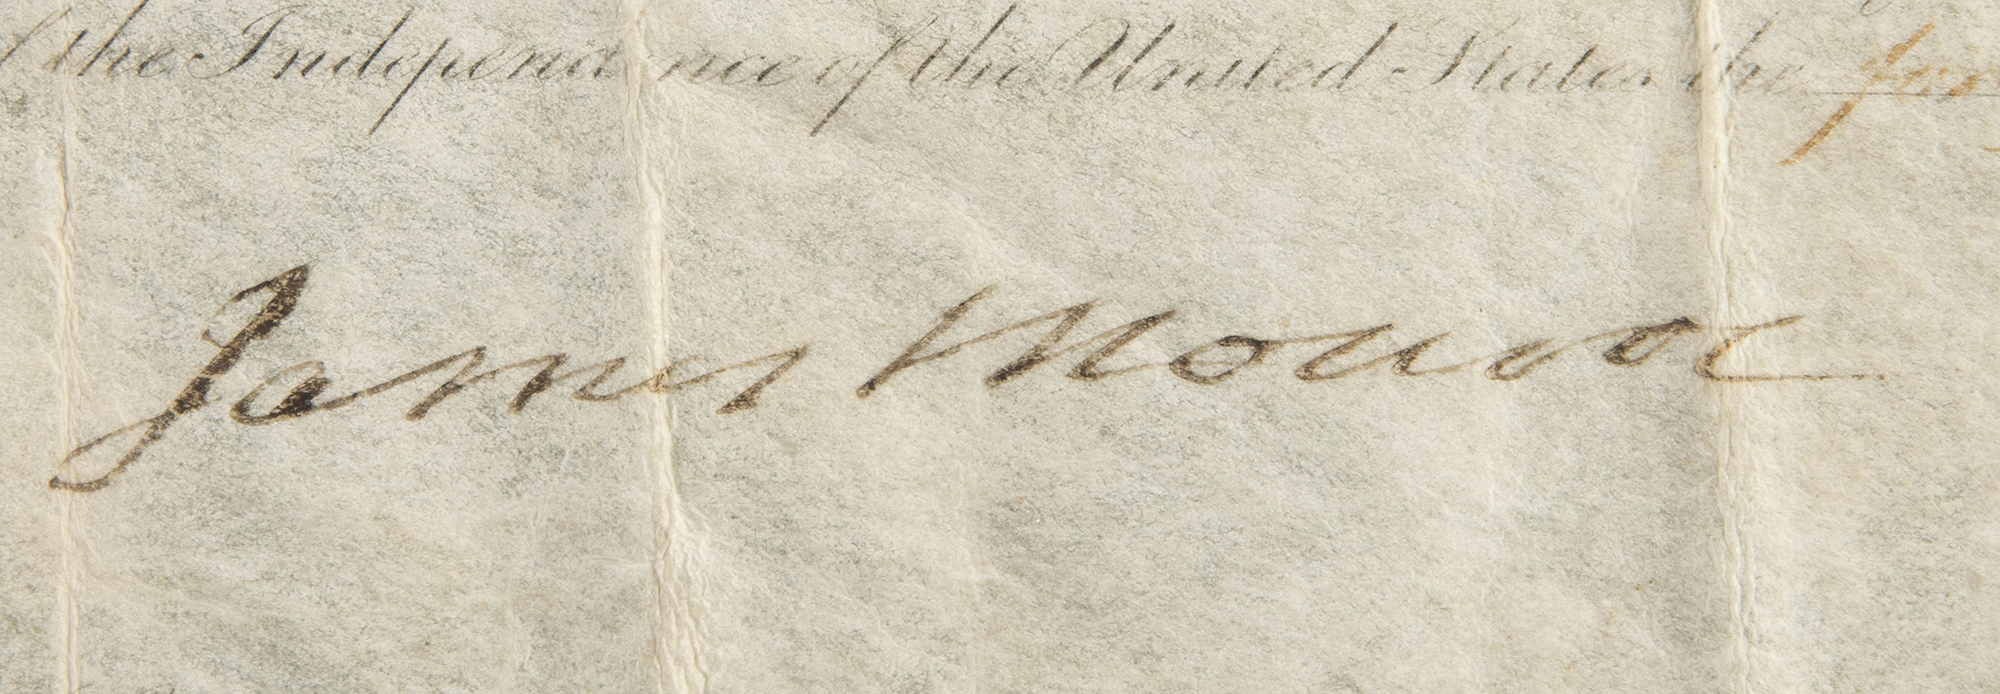 the Independence of the United States the
James Monroe